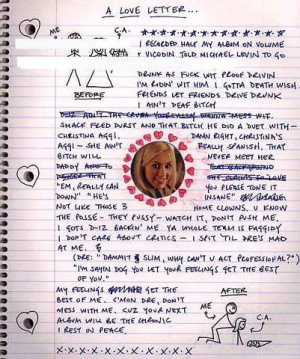 A LOVE LETTER...
ME
C.A.
I RECORDED HALF MY ALBUM ON VOLUME
+ VICODIN TOLD MICHAEL LEVIN TO GO
DRUNK AS FUCK WIT PROOF DRIVIN
I'M RIDIN' WIT HIM I GOTTA DEATH WISH
FRIENDS LET FRIENDS DRIVE DRUNK
I AIN'T DEAF BITCH
BEFORE
SMACK FRED DURST AND THAT BITCH HE DID A DUET WITH -
CHRISTINA AGGI, DAMN RIGHT, CHRISTINA'S
AGGI - SHE AIN'T REALLY SPANISH. THAT
BITCH WILL NEVER MEET HER
DADDY
"EM, REALLY CAN YOU PLEASE TONE IT
DOWN" "HE'S INSANE"
NOT LIKE THOSE 3 HOME CLOWNS. U KNOW
THE POSSE - THEY PUSSY - WATCH IT, DON'T PUSH ME,
I GOTS D-12 BACKIN' ME YA WHOLE TEAM IS FAGGIDY
I DON'T CARE ABOUT CRITICS - I SPIT 'TIL DRE'S MAD
AT ME.
(DRE: "DAMMIT SLIM, WHY CAN'T U ACT PROFESSIONAL?")
"I'M SAYIN DOG YOU LET YOUR FEELINGS GET THE BEST
OF YOU."
MY FEELINGS GET THE
BEST OF ME. C'MON DRE, DON'T
MESS WITH ME. CUZ YOUR NEXT
ALBUM WILL BE THE CHRONIC
I REST IN PEACE.
AFTER
ME
C.A.
X-X-X-X-X-X-X-X-X-X-X-X